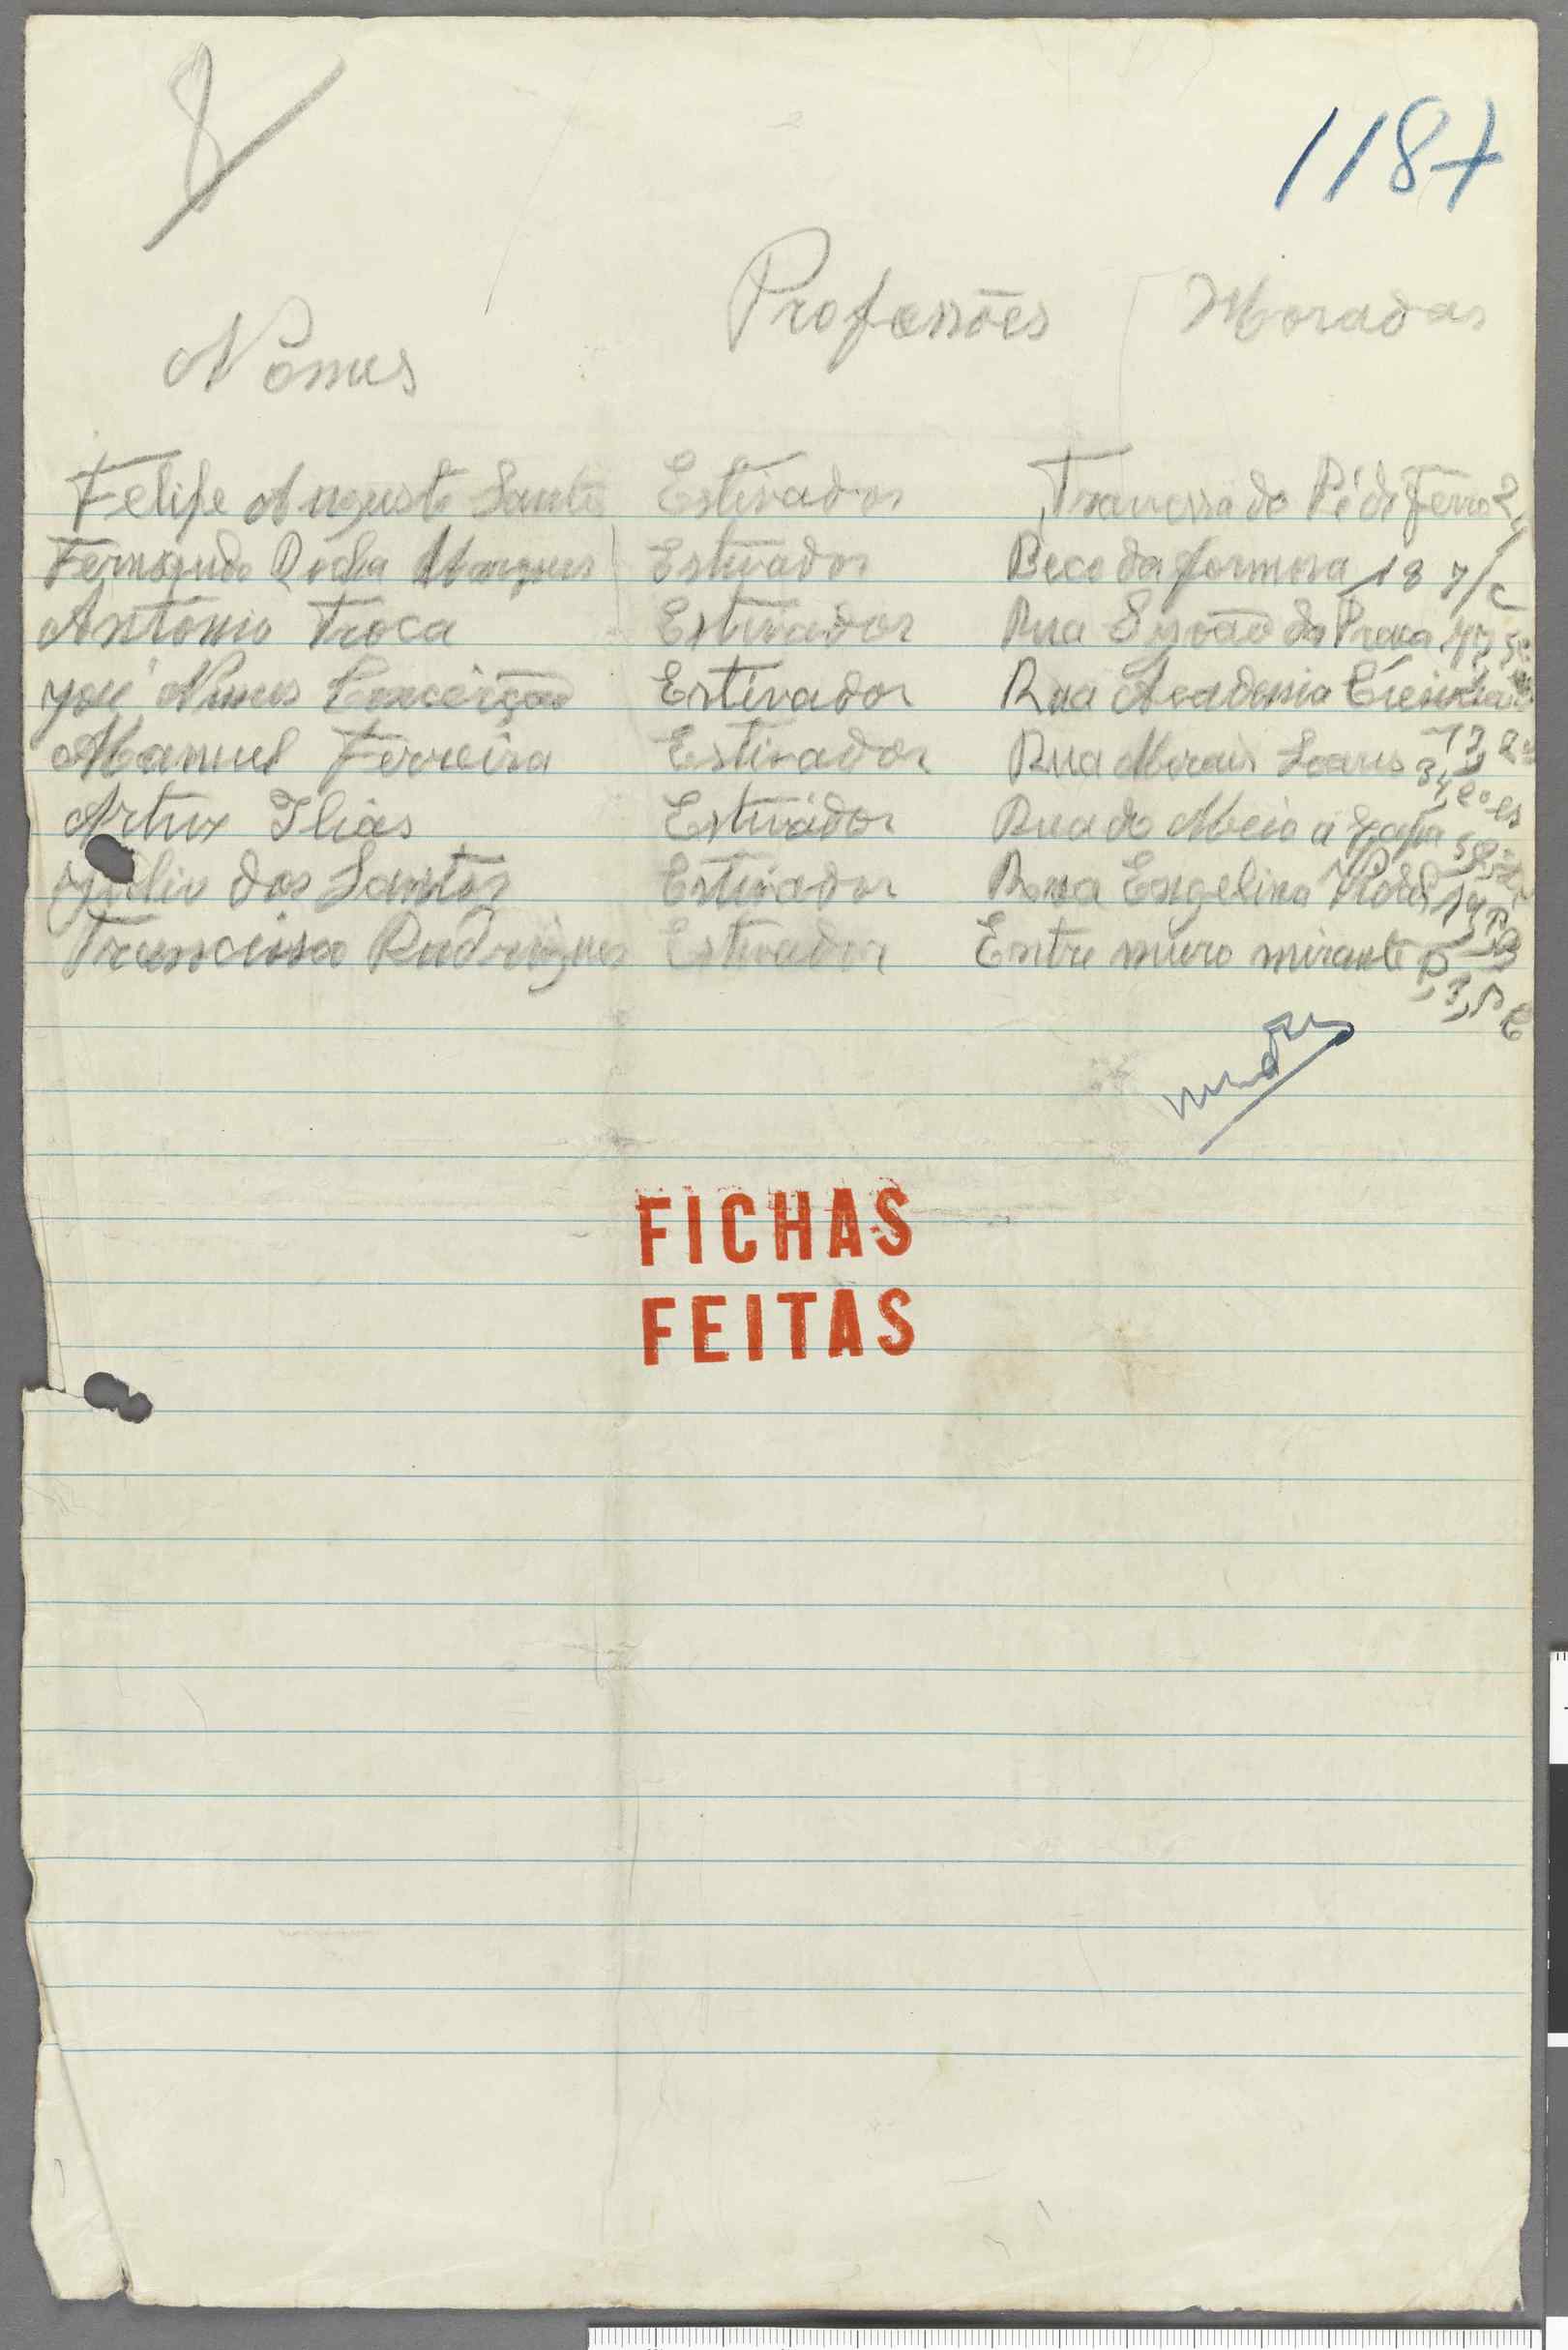 8
1187
Nomes Profossões Moradas
Felipe Augusto Santos Estivador Travessa do Pé di Ferro 24
Fernando Rocha Marques Estivador Beco da formosa 18 r/c
António Troca Estivador Rua S. João da Praça
José Nunes Conceição Estivador Rua Academia
Manuel Ferreira Estivador Rua Morais Soares
Artur Ilias Estivador Rua do Meio á Lapa
Julio dos Santos Estivador Rua Engelina Vidal
Francisco Rodrigues Estivador Entre muro mirante
FICHAS
FEITAS